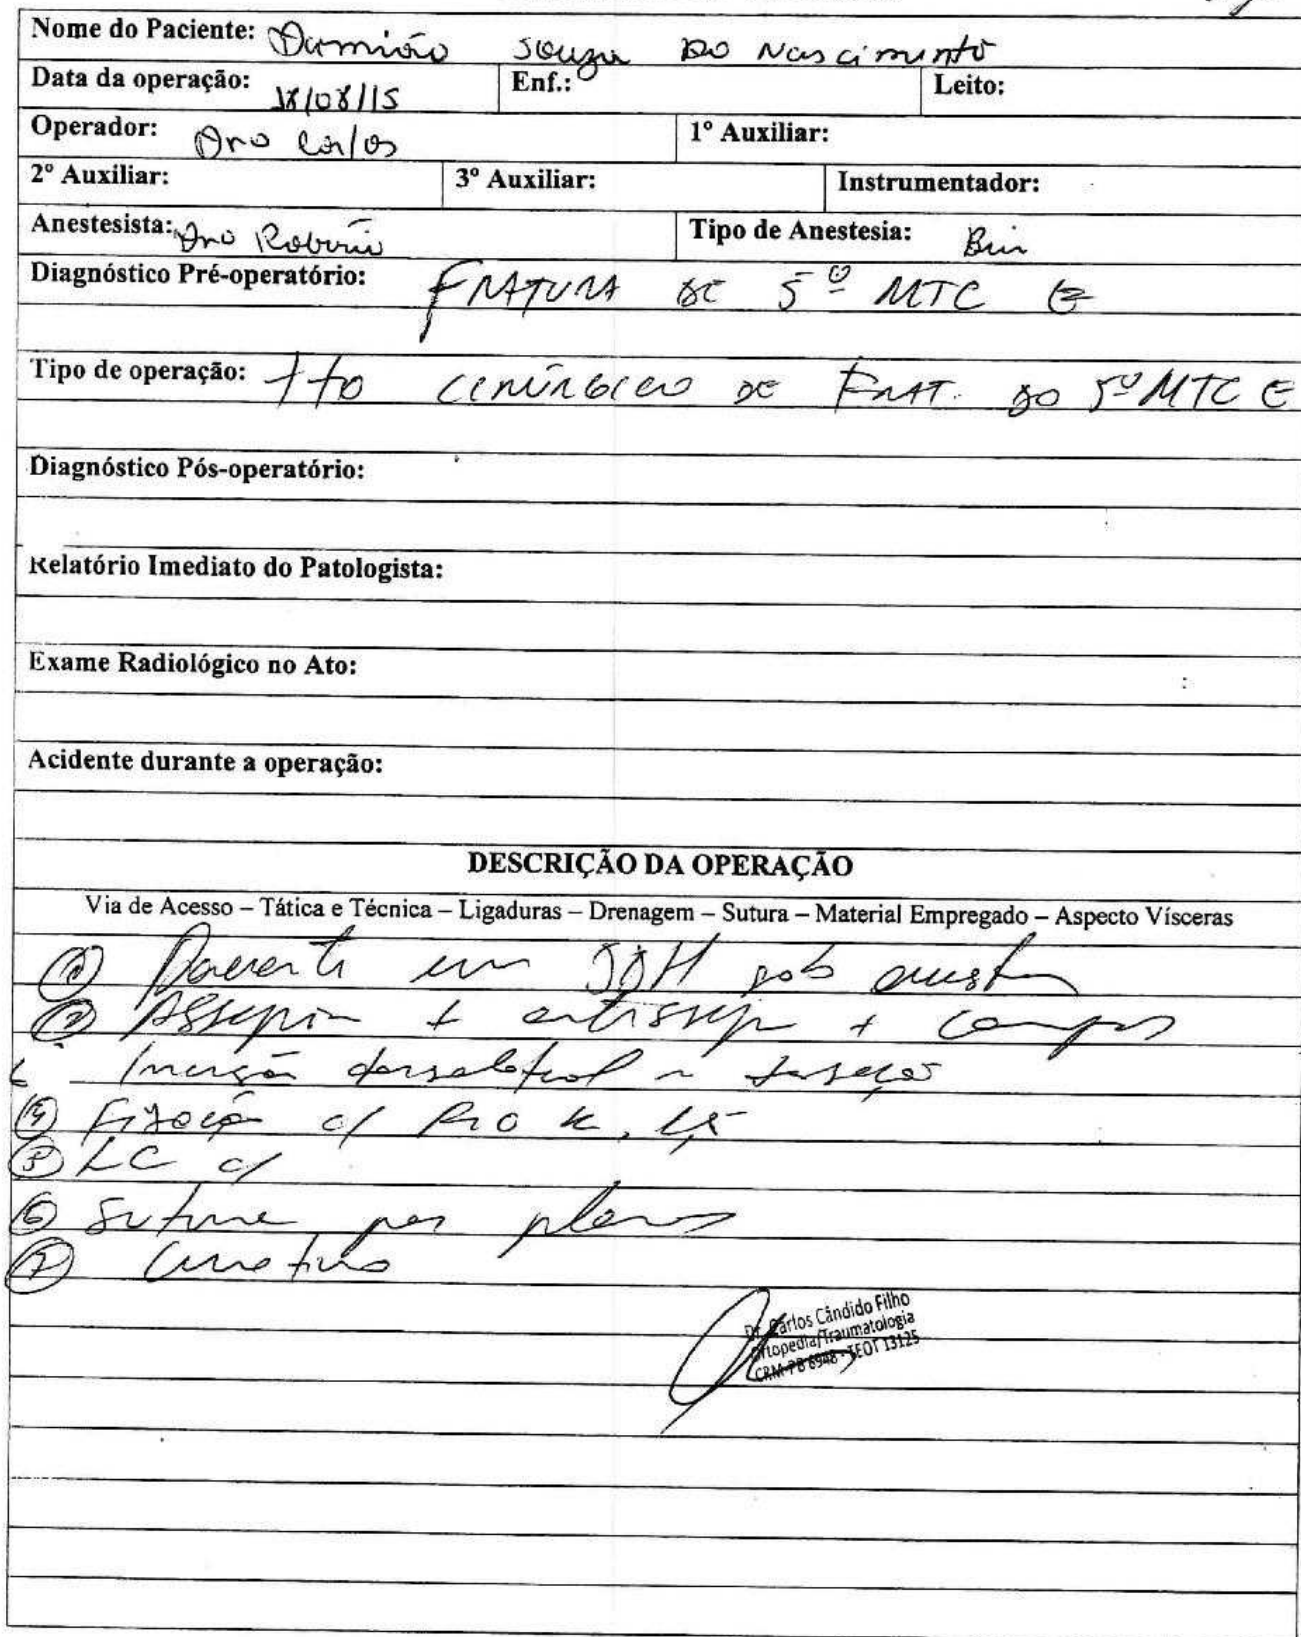 Nome do Paciente: Damião Souza Do Nascimento
Data da operação: 18/08/15 Enf.: Leito:
Operador: Dro Carlos 1º Auxiliar:
2º Auxiliar: 3º Auxiliar: Instrumentador:
Anestesista: Dro Robério Tipo de Anestesia:
Diagnóstico Pré-operatório: FRATURA DE 5º MTC E
Tipo de operação: tto CIRÚRGICO DE FRAT. DO 5º MTC E
Diagnóstico Pós-operatório:
Relatório Imediato do Patologista:
Exame Radiológico no Ato:
Acidente durante a operação:
DESCRIÇÃO DA OPERAÇÃO
Via de Acesso – Tática e Técnica – Ligaduras – Drenagem – Sutura – Material Empregado – Aspecto Vísceras
① Paciente em DDH sob
② Assepsia + antissep + campos
Incisão dorsolateral
④ Fixação c/ Fio K. 1,5
⑤ LC c/
⑥ Sutura por planos
⑦ Curativo
Dr. Carlos Cândido Filho
Ortopedia/Traumatologia
CRM-PB 6948 - TEOT 13125